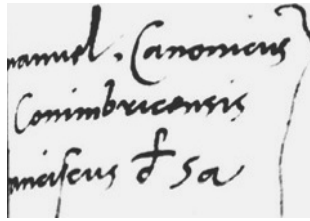 manuel. Canonicus
Conimbricensis
anciscus d Sa